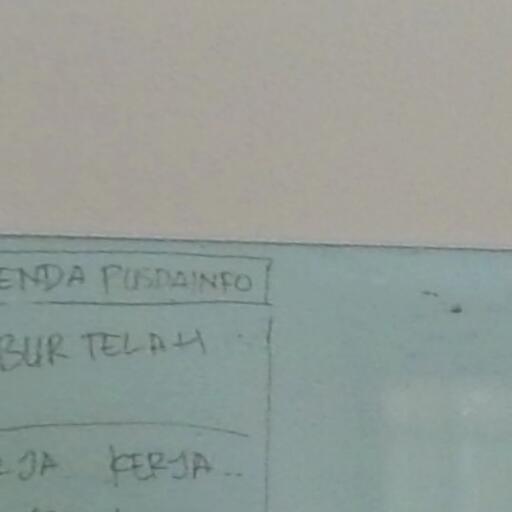 ENDA PUSDAINFO
BUR TELAH
RJA KERJA..